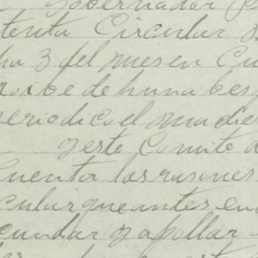 Gobernador P
tenta Circular
ha 3 del mes en Cu
de huna bes
eriodico el madie
y este Comite d
Cuenta las rasones
cular que antes en
cundar y apollar